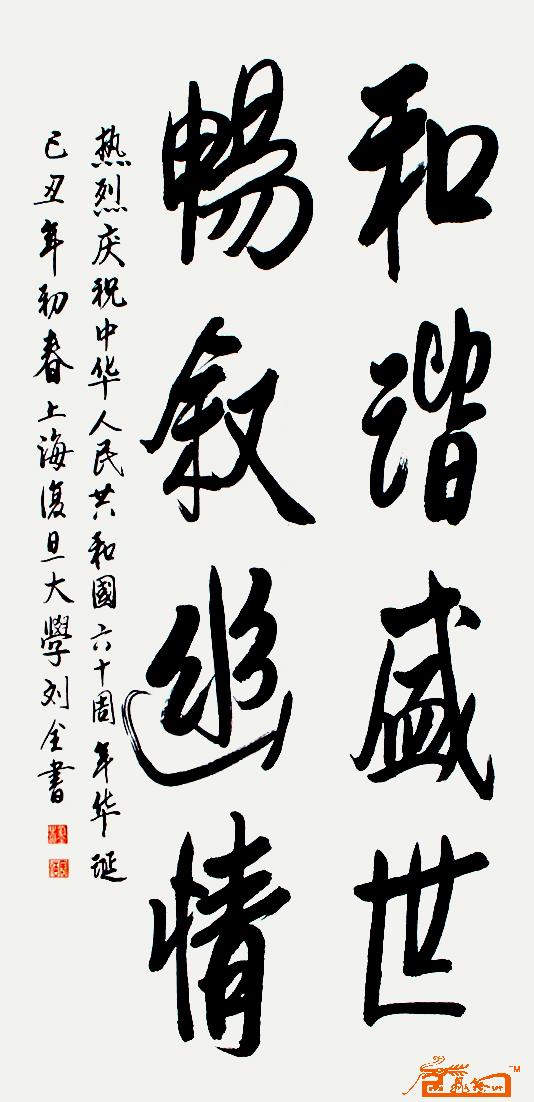 和谐盛世
暢叙幽情
热烈庆祝中华人民共和國六十周年华诞
己丑年初春上海復旦大學刘全書